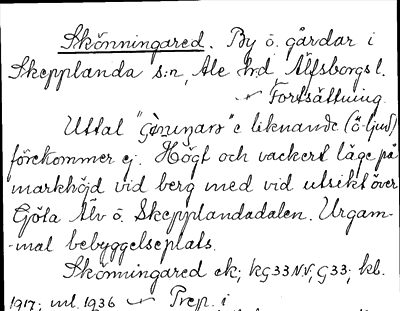 Skönningared. By ö. gårdar i
Skepplanda s:n, Ale hd, Älfsborgs l.
Fortsättning.
Uttal "Gönunare" e liknande (ö-ljud)
förekommer ej. Högt och vackert läge på
markhöjd vid berg med vid utsikt över
Göta Älv ö. Skepplandadalen. Urgam-
-mal bebyggelseplats.
Skönningared ek; KG33NV, G33; kbl.
1917; ml. 1936 Prep. i